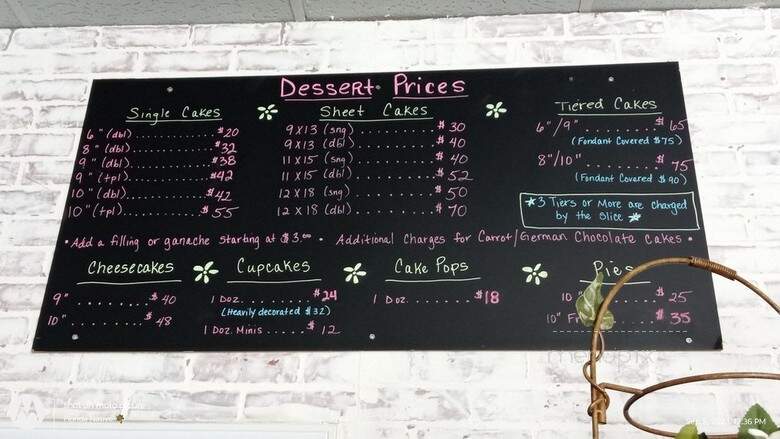 Dessert Prices
Single Cakes
6" (dbl)..............$20
8" (dbl)..............$32
9" (dbl)..............$38
9" (tpl)..............$42
10" (dbl)............$42
10" (tpl)............$55
Sheet Cakes
9 x 13 (sng)............$30
9 x 13 (dbl)............$40
11 x 15 (sng)............$40
11 x 15 (dbl)............$52
12 x 18 (sng)............$50
12 x 18 (dbl)............$70
Tiered Cakes
6"/9"............$65
(Fondant Covered $75)
8"/10"............$75
(Fondant Covered $90)
3 Tiers or More are charged
by the slice
• Add a filling or ganache starting at $3.00 • Additional Charges for Carrot/German Chocolate Cakes •
Cheesecakes
9"............$40
10"............$48
Cupcakes
1 Doz............$24
(Heavily decorated $32)
1 Doz. Minis.....$12
Cake Pops
1 Doz............$18
Pies
10 $25
10" $35
menupix